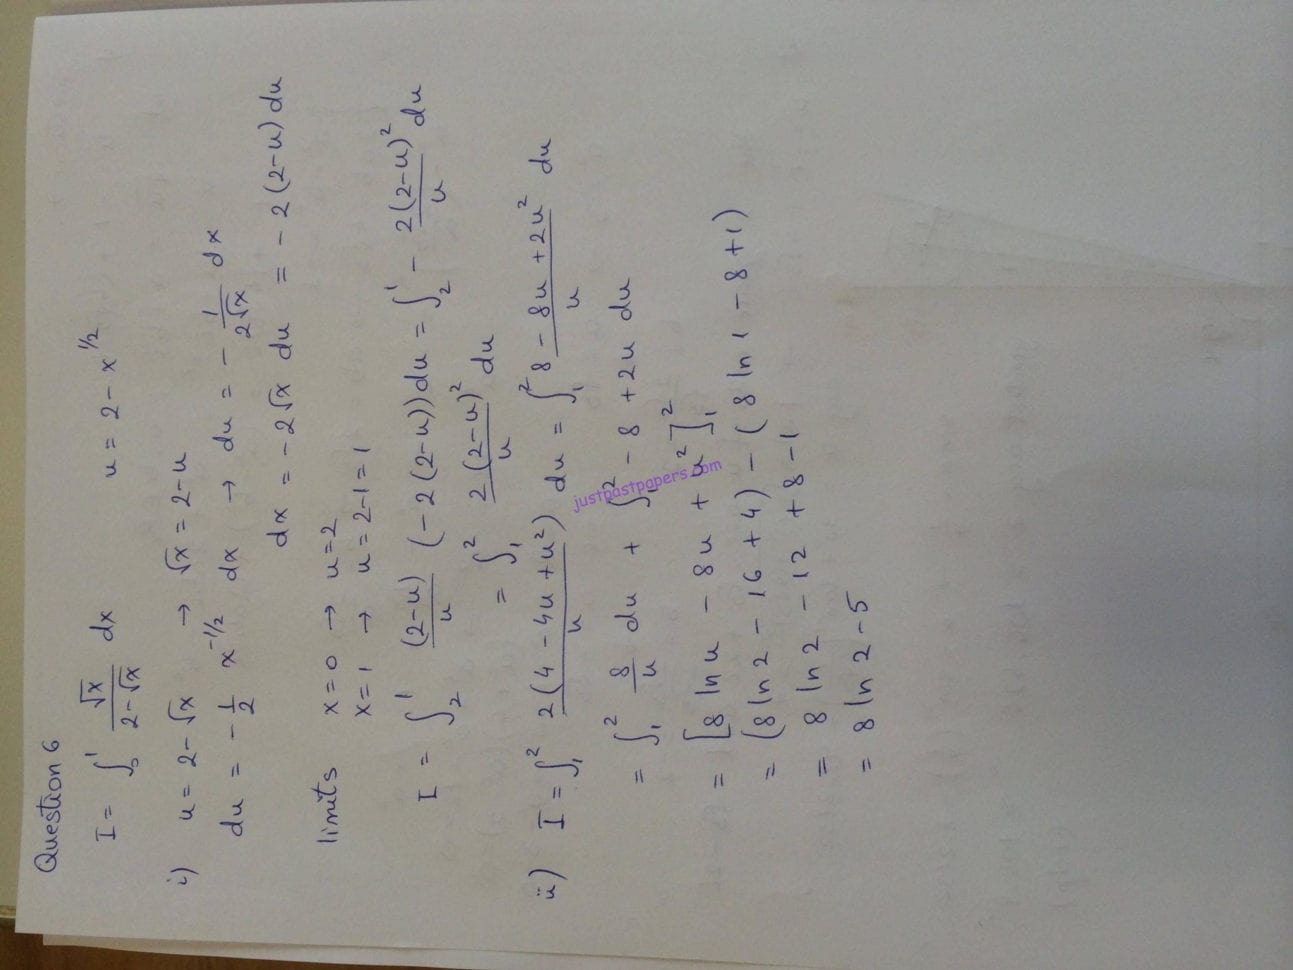 Question 6
I = ∫₀¹ √x / (2-√x) dx u = 2 - x^1/2
i) u = 2-√x → √x = 2-u
du = - 1/2 x^-1/2 dx → du = - 1/(2√x) dx
dx = -2√x du = -2(2-u) du
limits x=0 → u=2
x=1 → u=2-1=1
I = ∫₂¹ (2-u)/u (-2(2-u))du = ∫₂¹ - 2(2-u)²/u du
= ∫₁² 2(2-u)²/u du
ii) I = ∫₁² 2(4-4u+u²)/u du = ∫₁² (8-8u+2u²)/u du
= ∫₁² 8/u du + ∫₁² -8+2u du
= [8 ln u - 8u + u²]₁²
= (8 ln 2 - 16 + 4) - (8 ln 1 - 8 + 1)
= 8 ln 2 - 12 + 8 - 1
= 8 ln 2 - 5
justpastpapers.com